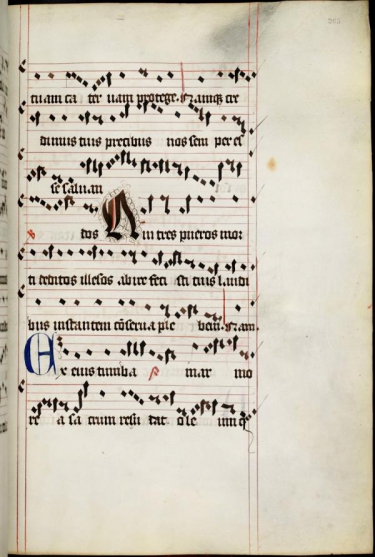 tuam ca ter uam protege. Namque cre
dimus tuis precibus nos sem per es
se saluan
dos in tres pueros mor
ti deditos illesos abire feci sti tuis laudi
bus instantem conserua ple bem. Nam.
Ex eius tumba mar mo
re a sa crum resu dat ole um